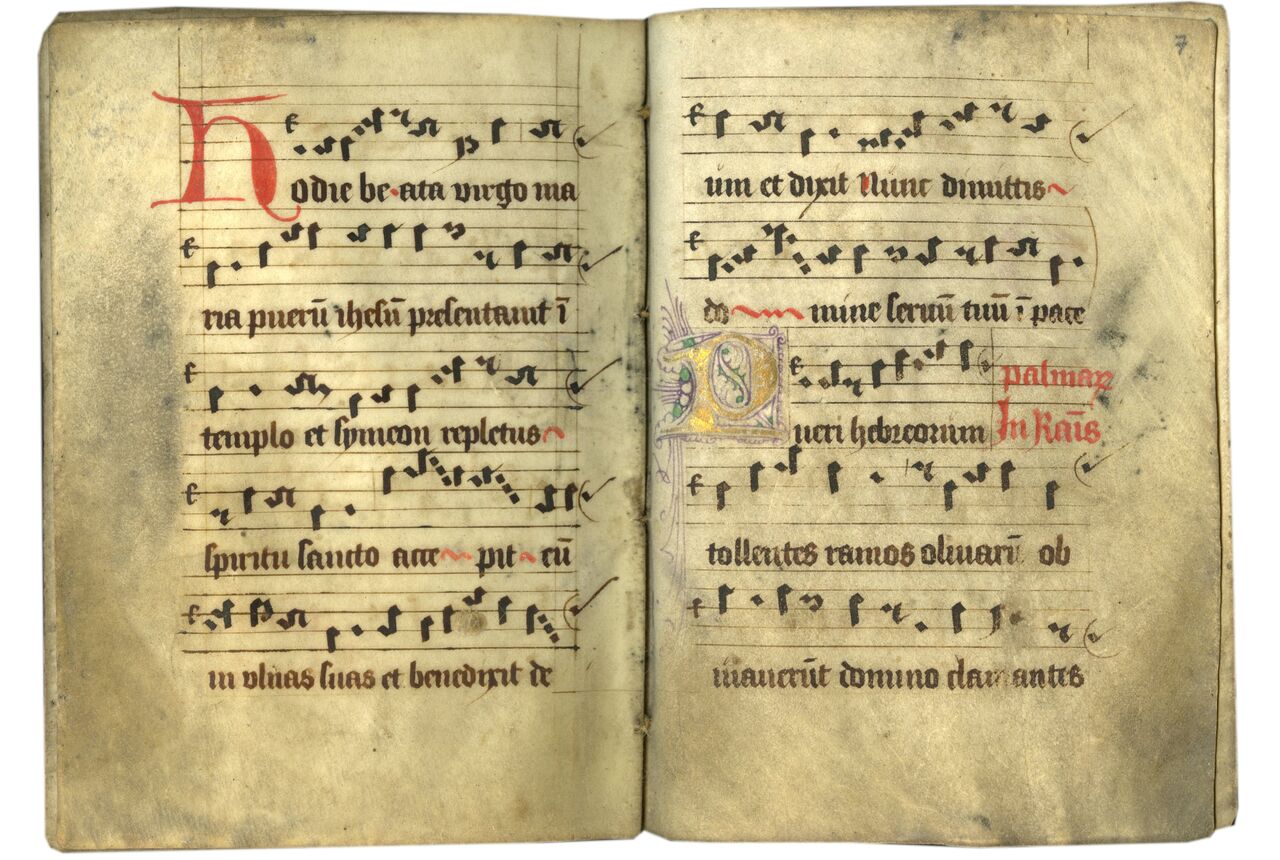 Hodie be ata virgo ma
ria puerū ihesū presentauit ī
templo et symeon repletus
spiritu sancto acce pit eū
in vlnas suas et benedixit de
7
um et dixit Nunc dimittis
do mine seruū tuū ī pace
Pueri hebreorum
palmaꝝ
In Ramīs
tollentes ramos oliuarū ob
uiauerūt domino clamantes